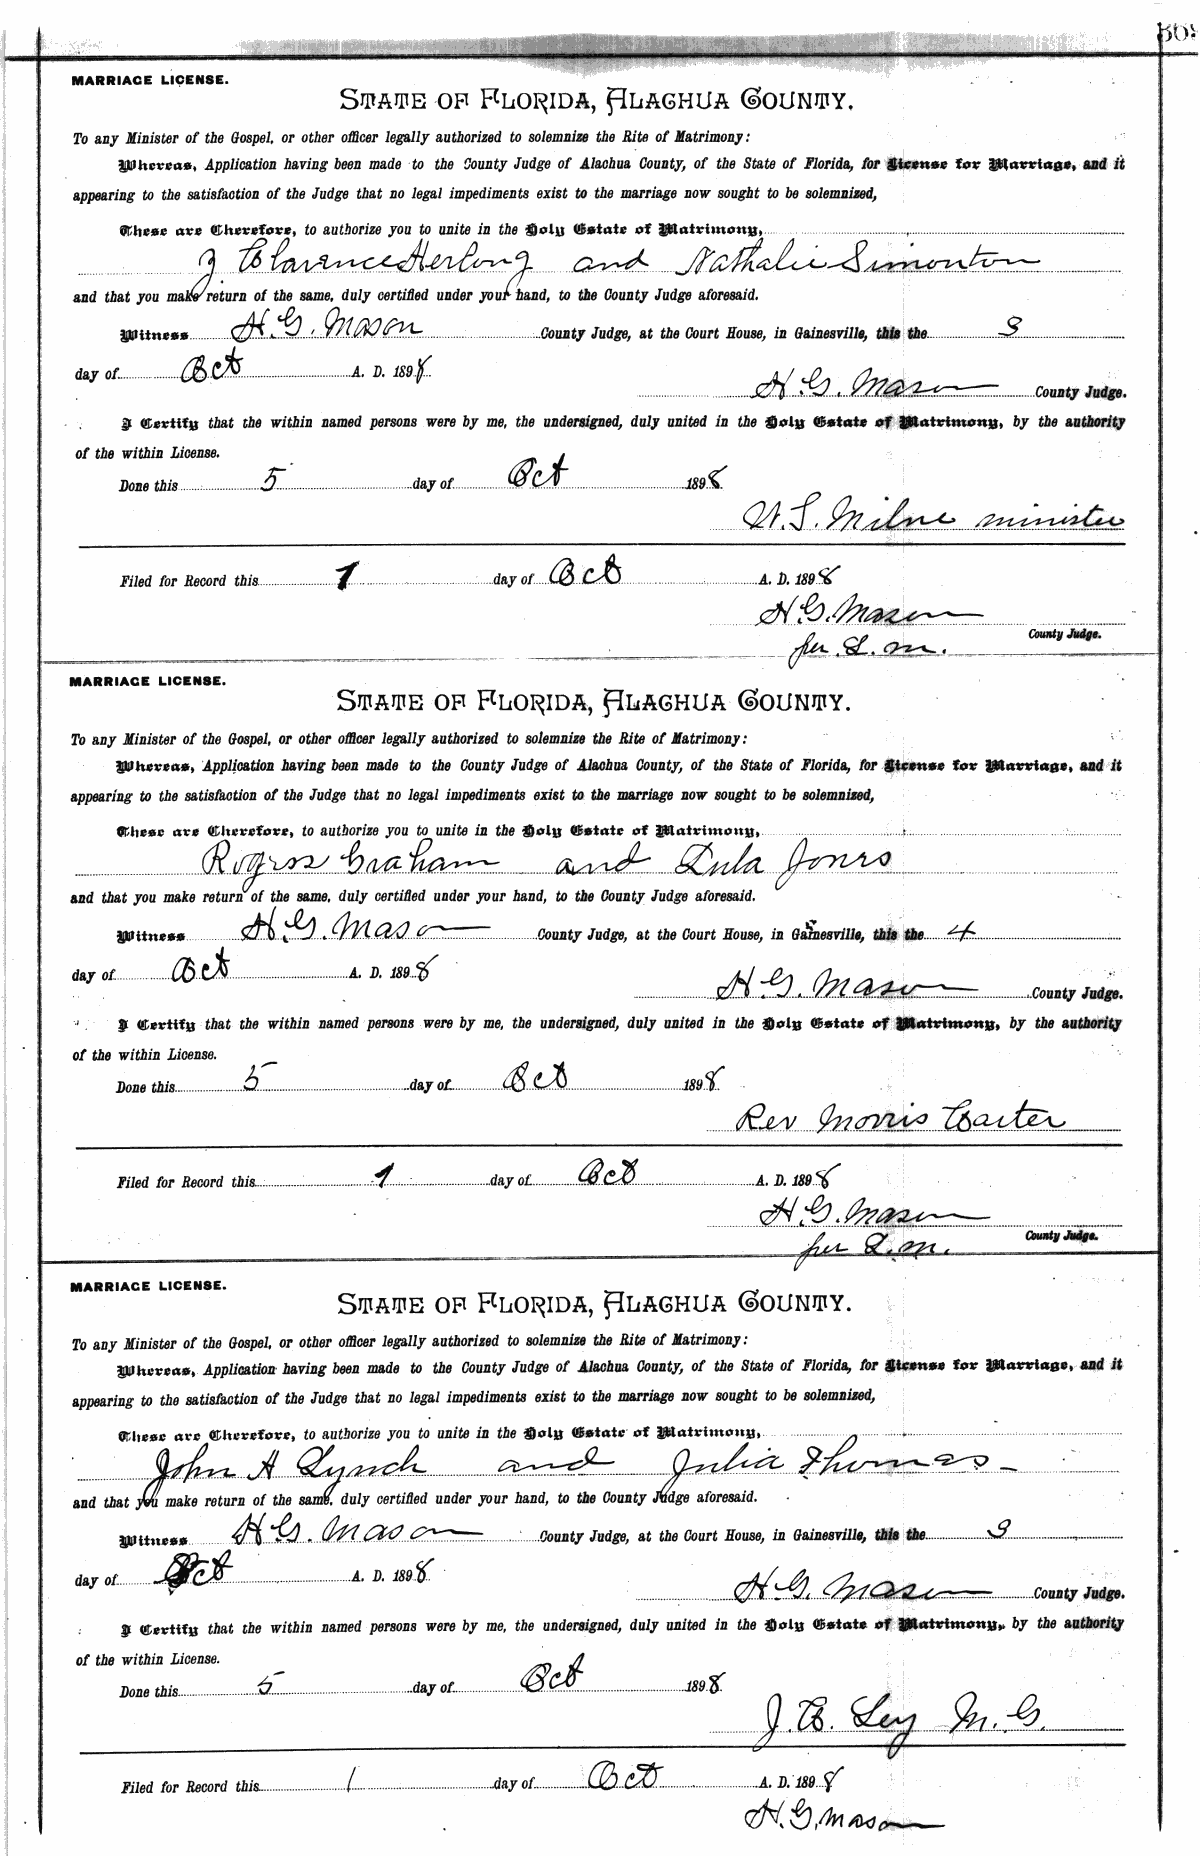 MARRIAGE LICENSE.
STATE OF FLORIDA, ALACHUA COUNTY.
To any Minister of the Gospel, or other officer legally authorized to solemnize the Rite of Matrimony:
Whereas, Application having been made to the County Judge of Alachua County, of the State of Florida, for License for Marriage, and it
appearing to the satisfaction of the Judge that no legal impediments exist to the marriage now sought to be solemnized,
These are Therefore, to authorize you to unite in the Holy Estate of Matrimony,
Clarence Herlong and Nathalie Simonton
and that you make return of the same, duly certified under your hand, to the County Judge aforesaid.
Witness H.G. Mason County Judge, at the Court House, in Gainesville, this the 3
day of Oct A. D. 1898
H.G. Mason County Judge.
I Certify that the within named persons were by me, the undersigned, duly united in the Holy Estate of Matrimony, by the authority
of the within License.
Done this 5 day of Oct 1898
Milne minister
Filed for Record this 1 day of Oct A. D. 1898
H.G. Mason
County Judge.
per L.M.
MARRIAGE LICENSE.
STATE OF FLORIDA, ALACHUA COUNTY.
To any Minister of the Gospel, or other officer legally authorized to solemnize the Rite of Matrimony:
Whereas, Application having been made to the County Judge of Alachua County, of the State of Florida, for License for Marriage, and it
appearing to the satisfaction of the Judge that no legal impediments exist to the marriage now sought to be solemnized,
These are Therefore, to authorize you to unite in the Holy Estate of Matrimony,
Graham and Lula Jones
and that you make return of the same, duly certified under your hand, to the County Judge aforesaid.
Witness H.G. Mason County Judge, at the Court House, in Gainesville, this the 4
day of Oct A. D. 1898
H.G. Mason County Judge.
I Certify that the within named persons were by me, the undersigned, duly united in the Holy Estate of Matrimony, by the authority
of the within License.
Done this 5 day of Oct 1898
Rev Morris Carter
Filed for Record this 1 day of Oct A. D. 1898
H.G. Mason
County Judge.
per L.M.
MARRIAGE LICENSE.
STATE OF FLORIDA, ALACHUA COUNTY.
To any Minister of the Gospel, or other officer legally authorized to solemnize the Rite of Matrimony:
Whereas, Application having been made to the County Judge of Alachua County, of the State of Florida, for License for Marriage, and it
appearing to the satisfaction of the Judge that no legal impediments exist to the marriage now sought to be solemnized,
These are Therefore, to authorize you to unite in the Holy Estate of Matrimony,
John A Lynch and Julia Thomas
and that you make return of the same, duly certified under your hand, to the County Judge aforesaid.
Witness H.G. Mason County Judge, at the Court House, in Gainesville, this the 3
day of Oct A. D. 1898
H.G. Mason County Judge.
I Certify that the within named persons were by me, the undersigned, duly united in the Holy Estate of Matrimony, by the authority
of the within License.
Done this 5 day of Oct 1898
J.B. Ley M.G.
Filed for Record this 1 day of Oct A. D. 1898
H.G. Mason